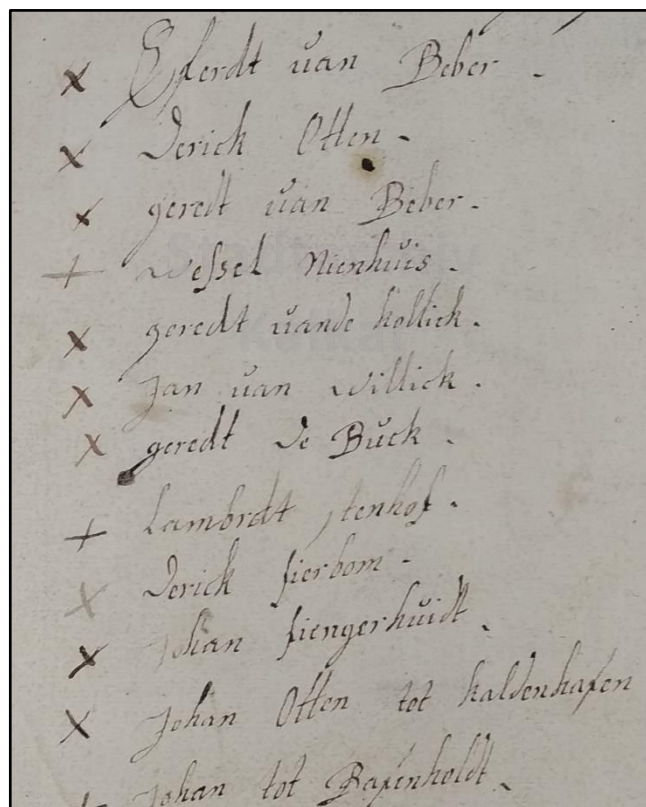 x Eferdt van Beber.
x Derick Otten.
x geredt van Beber.
+ Wessel Nienhuis.
x geredt vande kollick.
x Jan van Willick.
x geredt de Buck.
+ Lambrdt
x Derick fierbom.
x Johan fiengerhuidt.
x Johan Otten tot kaldenhafen
+ Johan tot Bafenholdt.